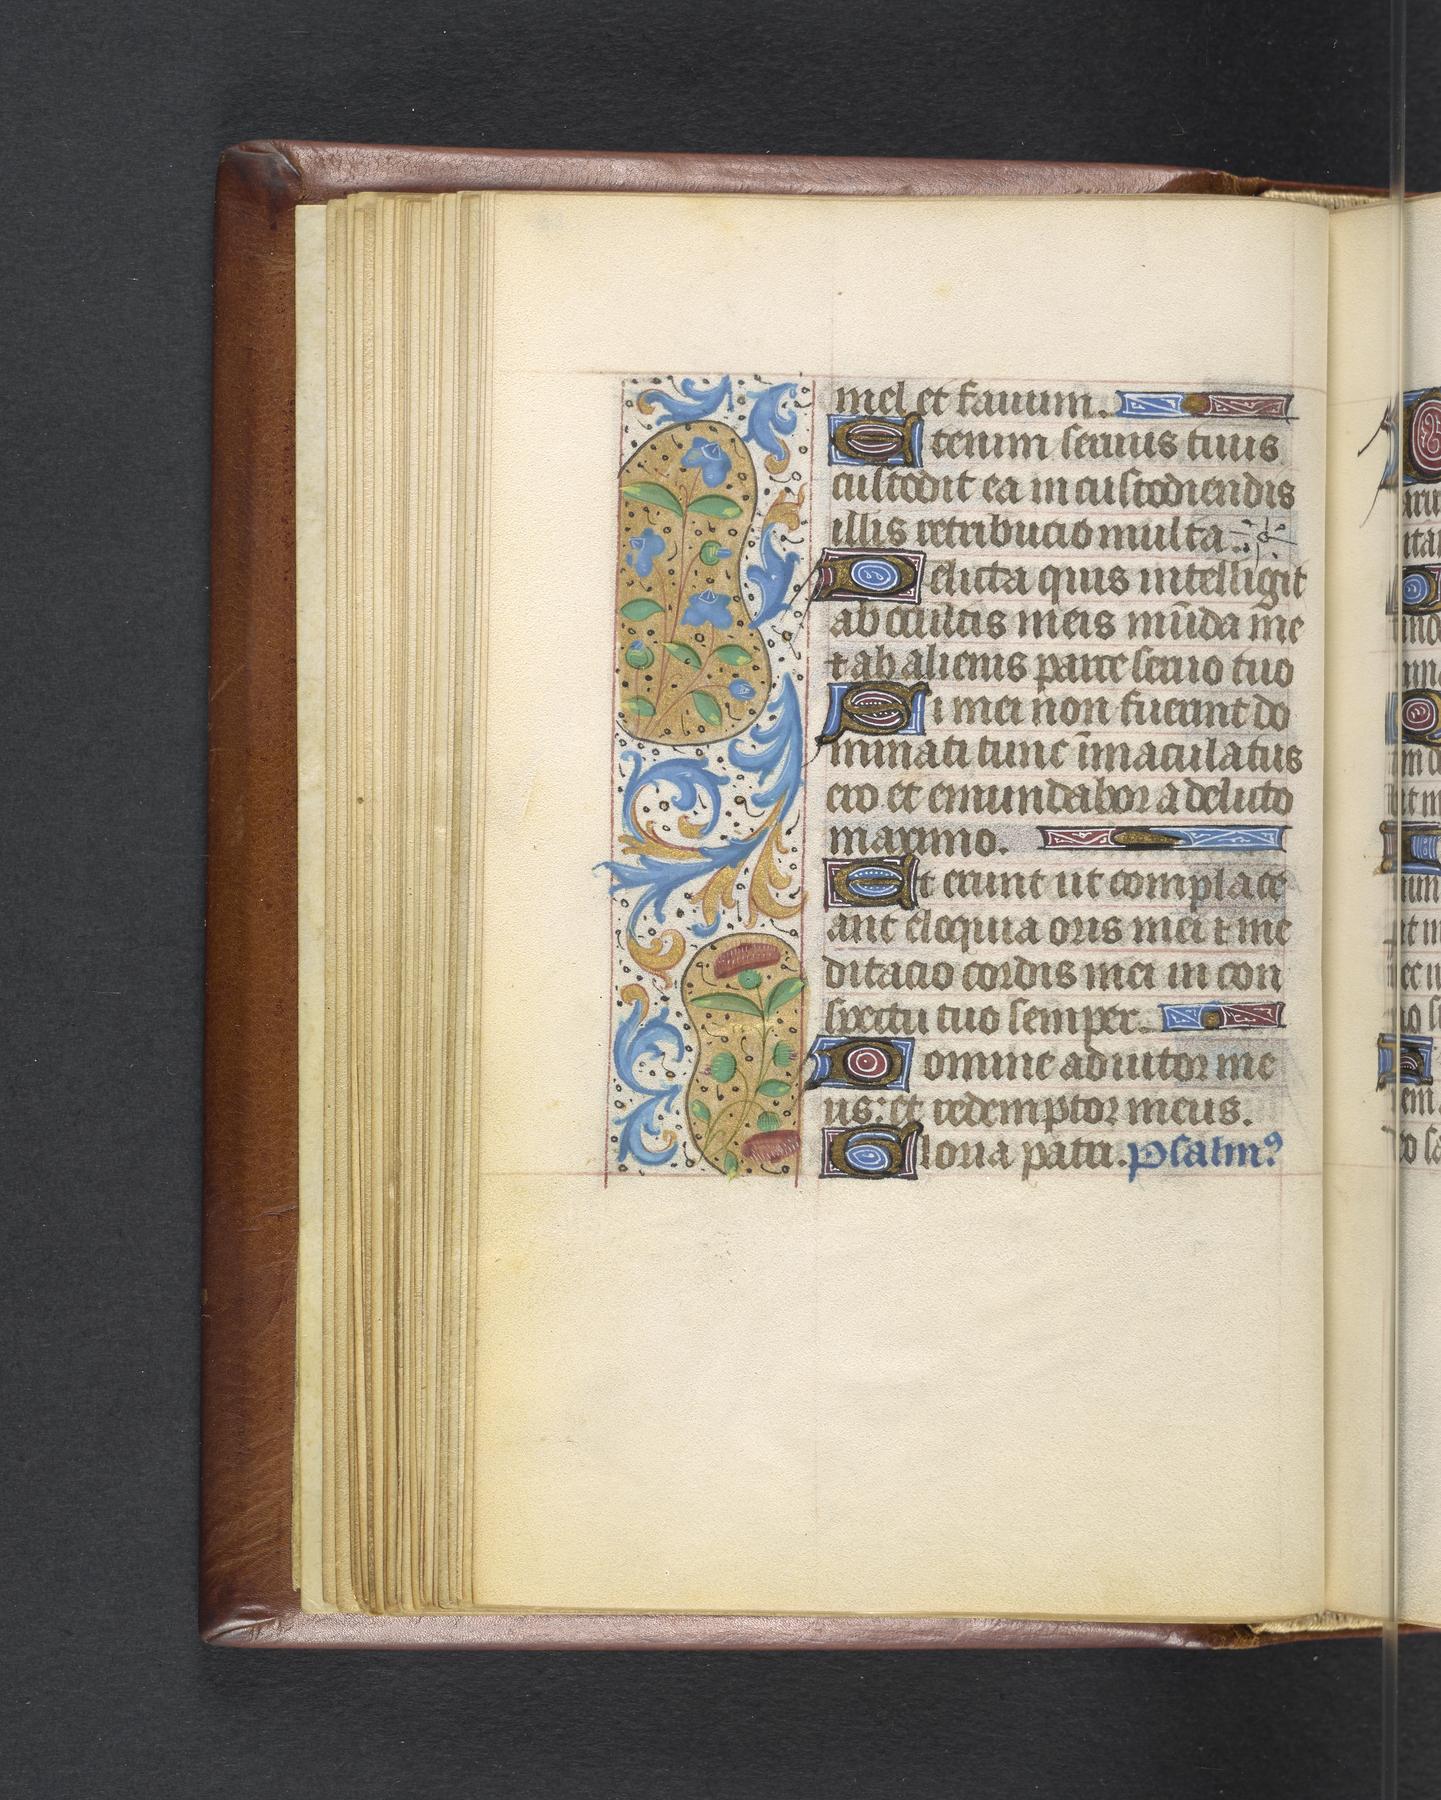 mel et fauum.
Etenim seruus tuus
custodit ea in custodiendis
illis retribucio multa.
Delicta quis intelligit
ab occultis meis mūda me
⁊ ab alienis parce seruo tuo
Si mei non fuerint do
minati tunc īmaculatus
ero et emundabor a delicto
maximo.
Et erunt ut complace
ant eloquia oris mei ⁊ me
ditacio cordis mei in con
spectu tuo semper.
Domine adiutor me
us: et redemptor meus.
Gloria patri. Psalmꝰ